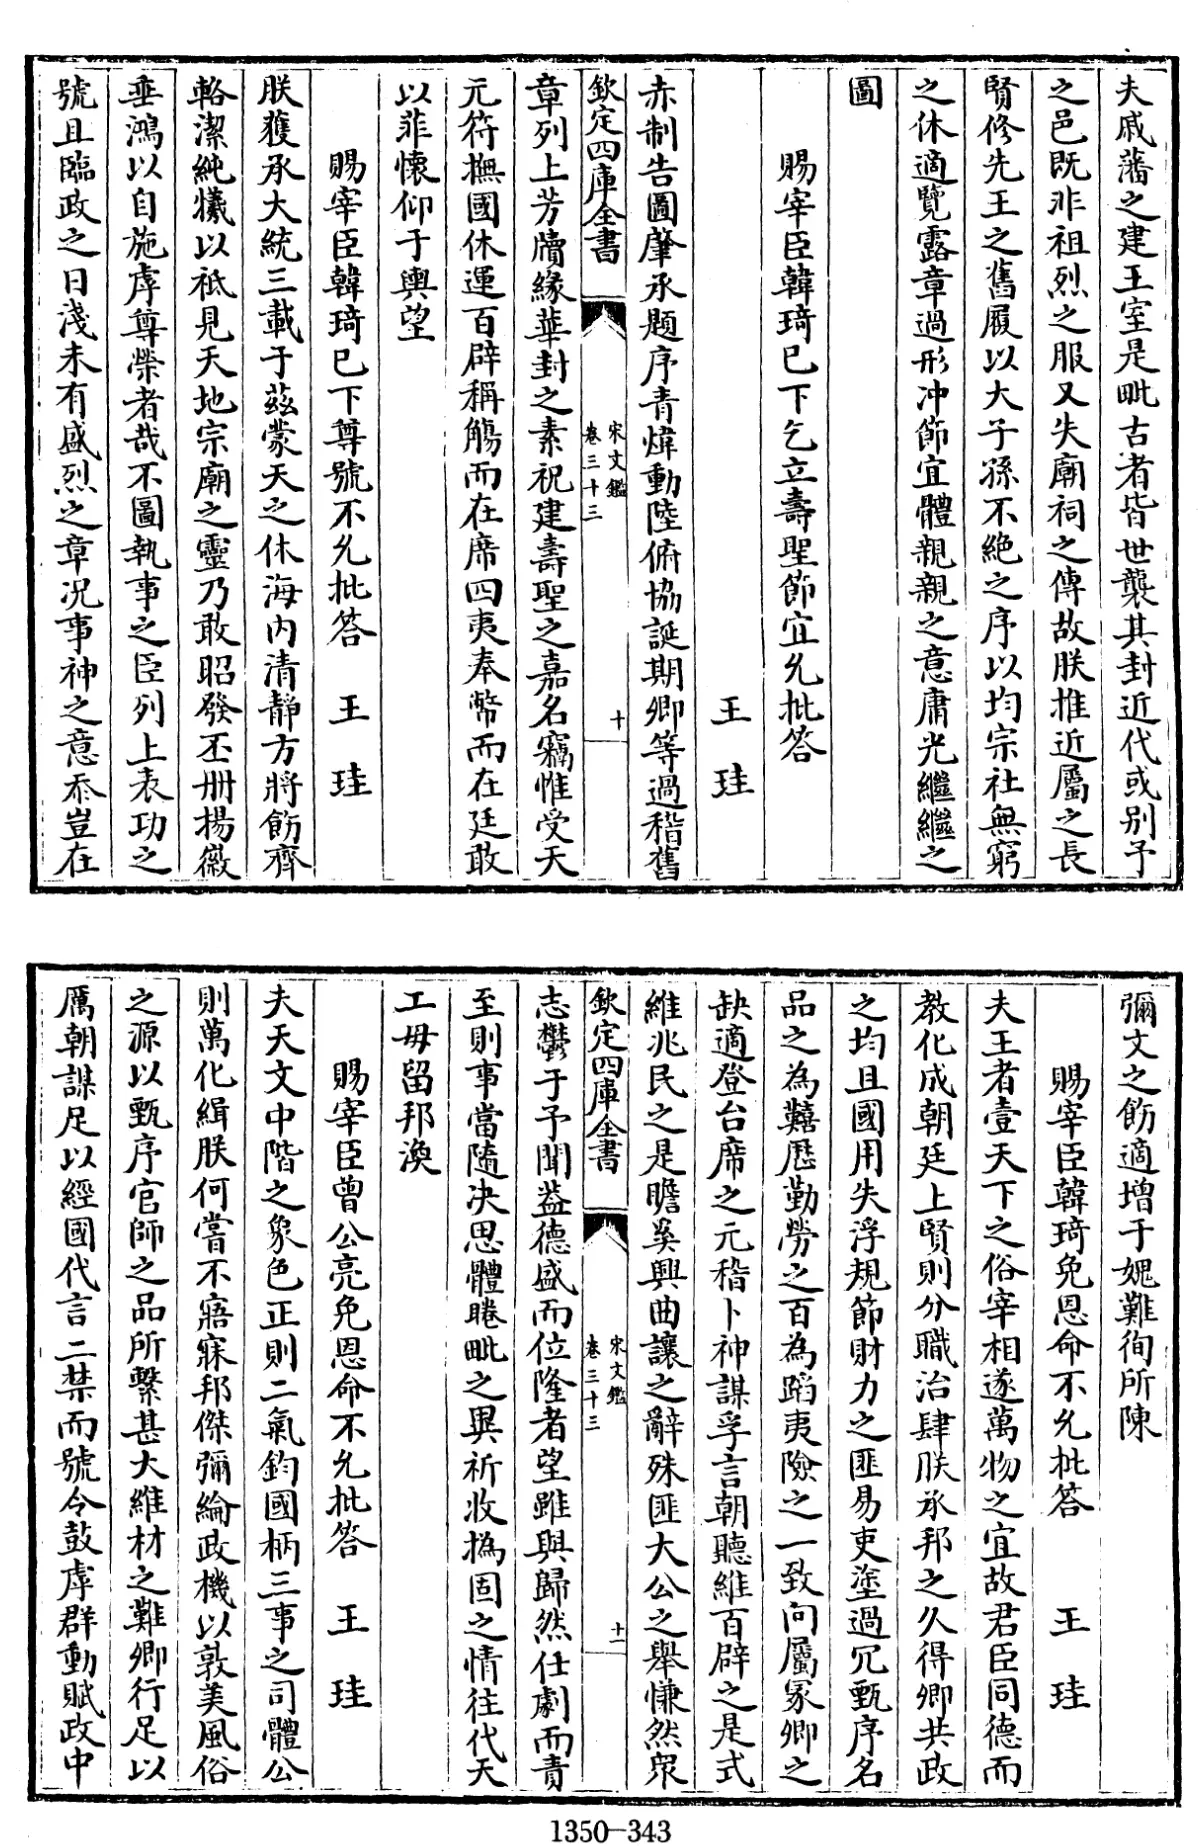 夫戚藩之建王室是毗古者皆世襲其封近代或别予
之邑既非祖烈之服又失廟祠之傳故朕推近屬之長
賢修先王之舊履以大子孫不絶之序以均宗社無窮
之休適覽露章過形冲節宜體親親之意庸光繼繼之
圖
賜宰臣韓琦已下乞立壽聖節宜允批答
王珪
赤制告圖肇承題序青煒動陸俯協誕期卿等過稽舊
欽定四庫全書
宋文鑑
卷三十三
十
章列上芳牘緣華封之素祝建壽聖之嘉名竊惟受天
元符撫國休運百辟稱觴而在席四夷奉幣而在廷敢
以菲懷仰于輿望
賜宰臣韓琦已下尊號不允批答 王珪
朕獲承大統三載于兹蒙天之休海内清靜方將飭齊
輅潔純犧以祗見天地宗廟之靈乃敢昭發丕册揚徽
垂鴻以自施虖尊榮者哉不圖執事之臣列上表功之
號且臨政之日淺未有盛烈之章况事神之意忝豈在
彌文之飭適增于媿難徇所陳
賜宰臣韓琦免恩命不允批答 王珪
夫王者壹天下之俗宰相遂萬物之宜故君臣同德而
教化成朝廷上賢則分職治肆朕承邦之久得卿共政
之均且國用失浮規節財力之匪易吏塗過冗甄序名
品之為囏歷勤勞之百為蹈夷險之一致向屬冢卿之
缺適登台席之元稽卜神謀孚言朝聽維百辟之是式
維兆民之是瞻奚興曲讓之辭殊匪大公之舉慊然衆
欽定四庫全書
宋文鑑
卷三十三
十一
志鬱于予聞益德盛而位隆者望雖與歸然仕劇而責
至則事當隨决思體睠毗之異祈收撝固之情往代天
工毋留邦渙
賜宰臣曾公亮免恩命不允批答 王珪
夫天文中階之象色正則二氣鈞國柄三事之司體公
則萬化緝朕何嘗不寤寐邦傑彌綸政機以敦美風俗
之源以甄序官師之品所繫甚大維材之難卿行足以
厲朝謀足以經國代言二禁而號令鼓虖群動賦政中
1350-343